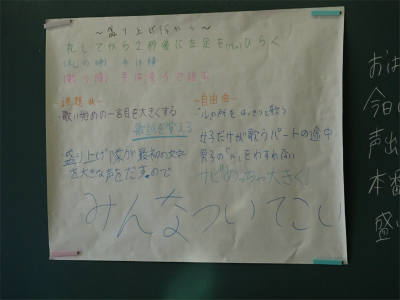 ～盛り上げ隊から～
礼してから2秒後に左足を(けい)ひらく
(礼の時) 手は横
(歌う時) 手は後ろで組む
-課題曲-
・歌い始めの一言目を大きくする
歌詞を覚える
盛り上げ隊が最初の文字
を大きな声をだすので
-自由曲-
の所をはっきりと歌う
女子だけが歌うパートの途中
男子の「」をわすれない
サビめっちゃ大きく!
みんなついてこい
おは
今日
声出
本番
盛い